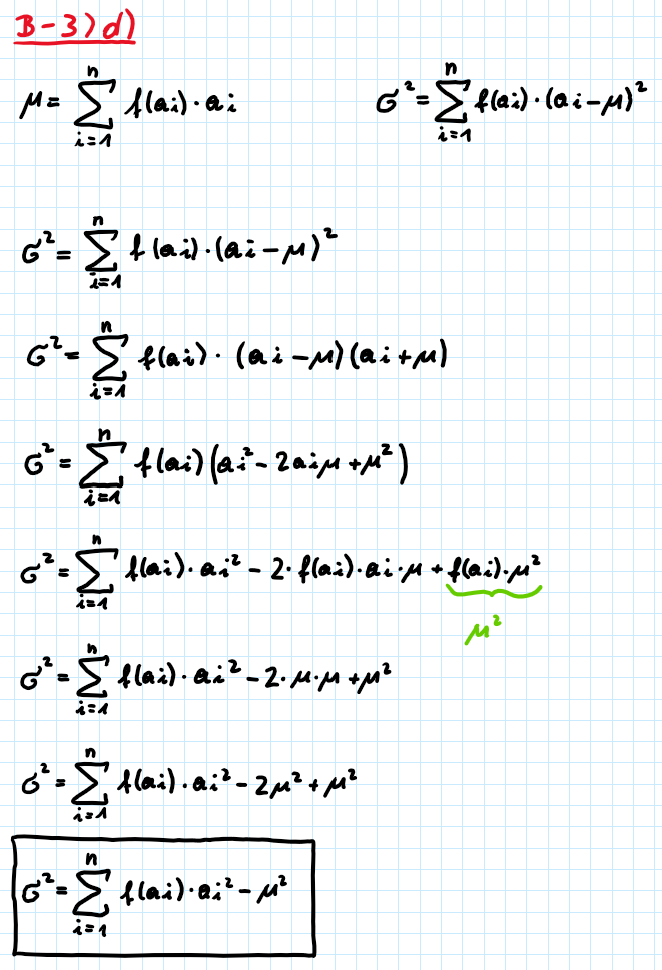 B-3) d)
μ = ∑_{i=1}^{n} f(ai) · ai    σ² = ∑_{i=1}^{n} f(ai) · (ai - μ)²
σ² = ∑_{i=1}^{n} f(ai) · (ai - μ)²
σ² = ∑_{i=1}^{n} f(ai) · (ai - μ)(ai + μ)
σ² = ∑_{i=1}^{n} f(ai) (ai² - 2aiμ + μ²)
σ² = ∑_{i=1}^{n} f(ai) · ai² - 2 · f(ai) · ai · μ + f(ai) · μ²
μ²
σ² = ∑_{i=1}^{n} f(ai) · ai² - 2 · μ · μ + μ²
σ² = ∑_{i=1}^{n} f(ai) · ai² - 2μ² + μ²
σ² = ∑_{i=1}^{n} f(ai) · ai² - μ²